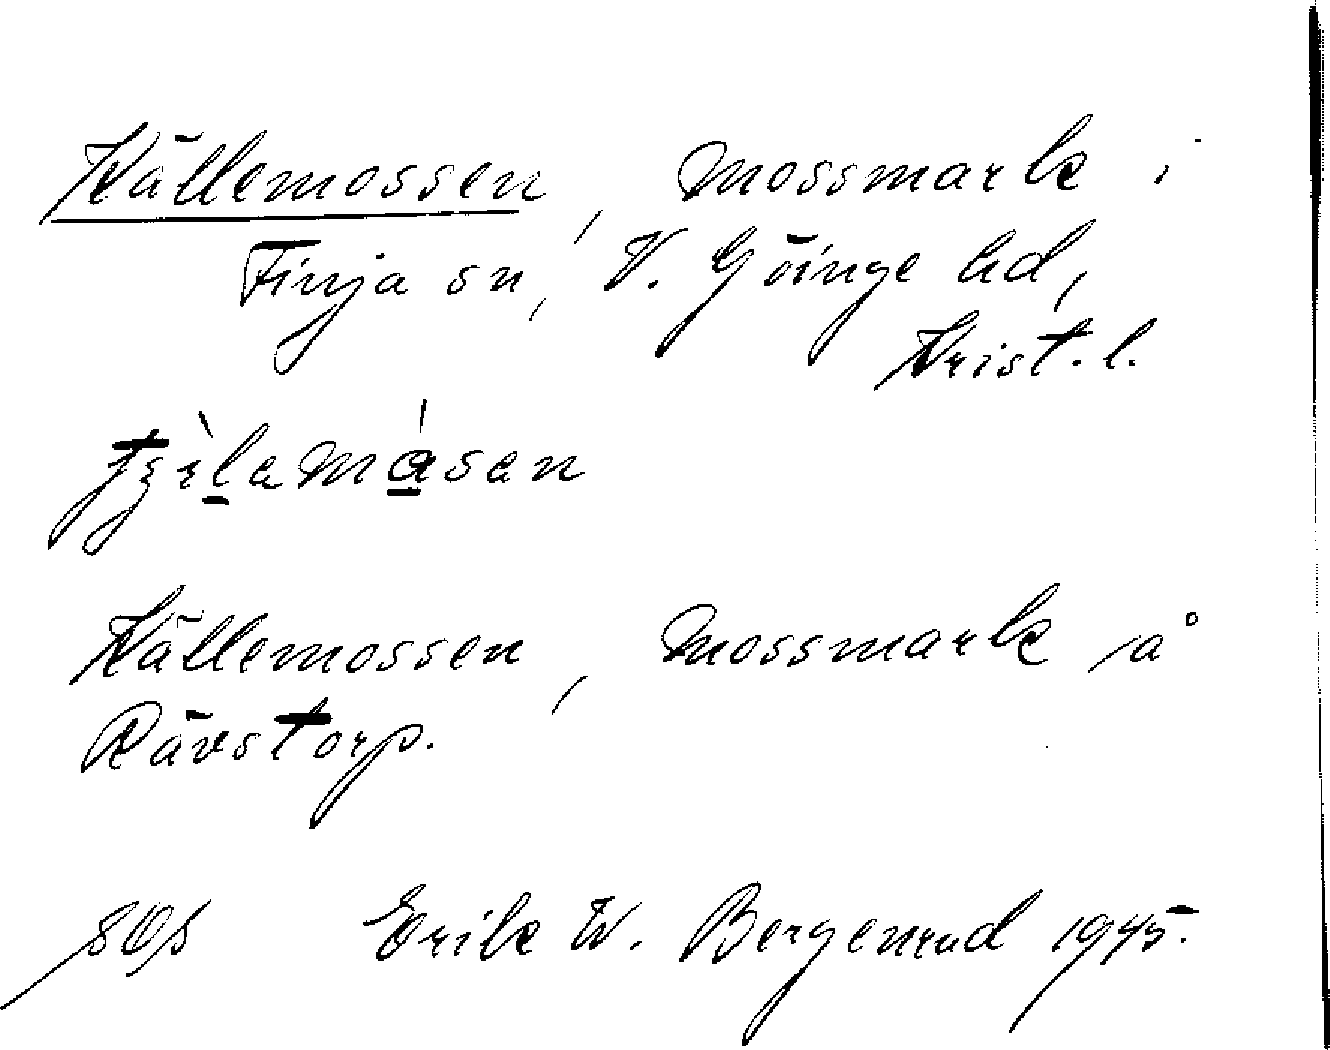 Källemossen, Mossmark i
Finja sn, V. Göinge hd,
Krist. l.
Källemossen, Mossmark å
Rävstorp.
Erik W. Bergenrud 1945.